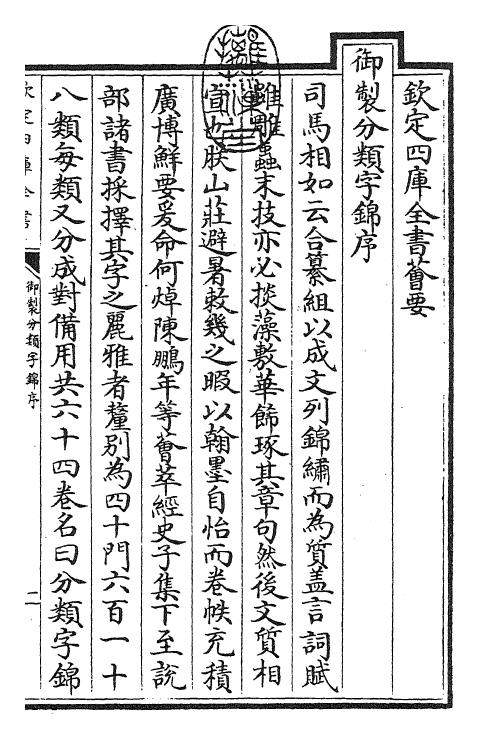 欽定四庫全書薈要
御製分類字錦序
司馬相如云合纂組以成文列錦繡而為質盖言詞賦
雖雕蟲末技亦必掞藻敷華飾琢其章句然後文質相
宣也朕山莊避暑敕幾之暇以翰墨自怡而卷帙充積
廣博鮮要爰命何焯陳鵬年等薈萃經史子集下至説
部諸書採擇其字之麗雅者釐別為四十門六百一十
八類每類又分成對備用共六十四卷名曰分類字錦
欽定四庫全書
御製分類字錦序
二